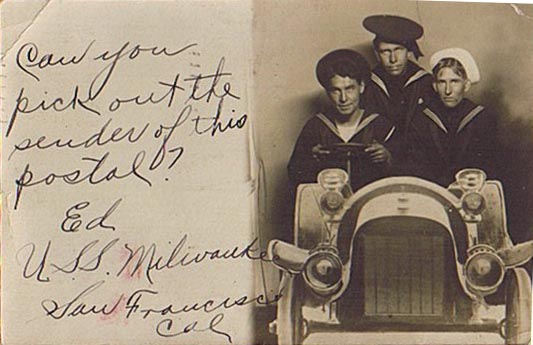 Can you
pick out the
sender of this
postal?
Ed
U.S.S. Milwaukee
San Francisco
Cal